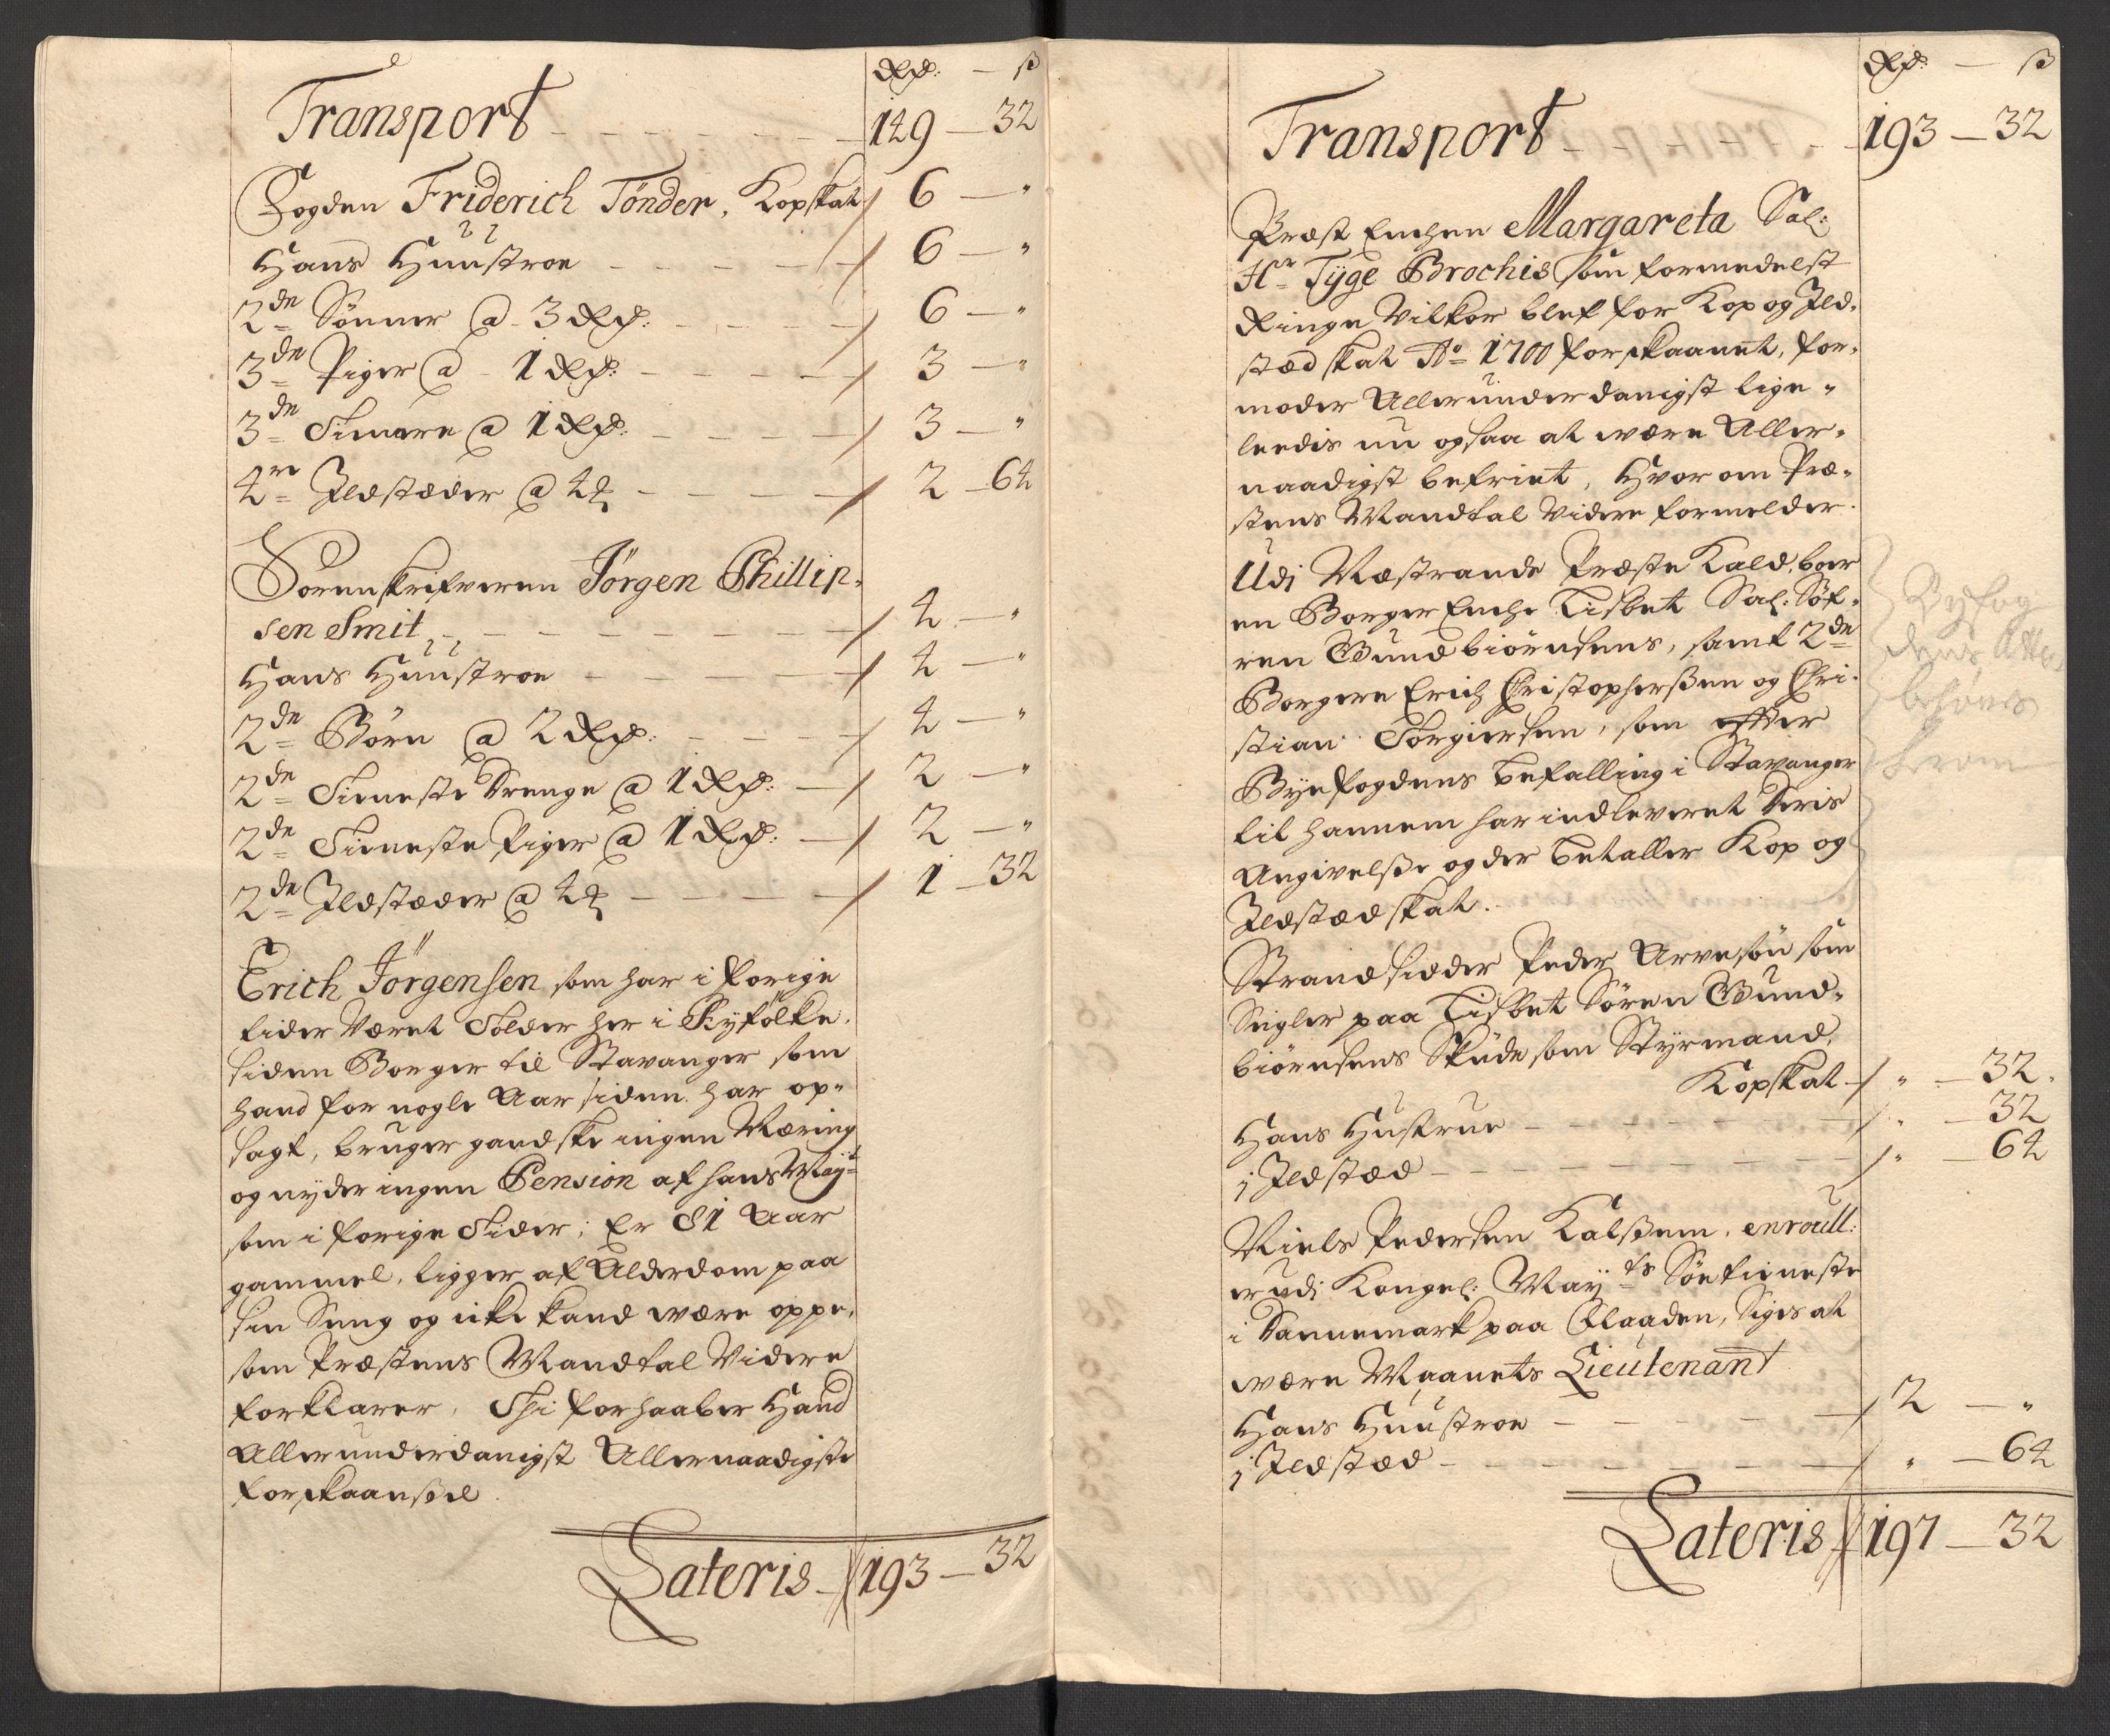 Rdr: — ß
Transport — 149 — 32
Fogden Friderich Tönder, Kopskat 6 — "
Hans Huustroe — 6 — "
2de Sönner @ 3 Rdr: — 6 — "
3de Piger @ 1 Rdr: — 3 — "
3de Tienere @ 1 Rdr: — 3 — "
4re Ildstæder @ 4 — 2 — 64
Sorenskrifveren Jörgen Phillip-
sen Smit — 4 — "
Hans Huustroe — 4 — "
2de Börn @ 2 Rdr: — 4 — "
2de Tieneste Drenge @ 1 Rdr: — 2 — "
2de Tieneste Piger @ 1 Rdr: — 2 — "
2de Ildstæder @ 4 — 1 — 32
Erich Jörgensen som har i forige
tider Været Tolder her i Ryfölke,
siden Borger til Stavanger som
hand for nogle Aar siden har op-
sagt, bruger gandske ingen Næring
og nyder ingen Pension af hans Mayt
som i forige Tider; Er 81 Aar
gammel, ligger af Alderdom paa
sin Seng og icke kand være oppe,
som Præstens Mandtal Videre
forklarer, Thi forhaaber Hand
Allerunderdanigst Allernaadigste
forskaansel
Lateris — 193 — 32
Rdr: — ß
Transport — 193 — 32
Præst Enchen Margareta Sal:
Hr Tyge Brochis som formedelst
Ringe Vilkor blef for Kop og Ild-
stæd skat Ao 1700 forskaanet, for-
moder Allerunderdanigst lige-
leedis nu ogsaa at være Aller-
naadigst befriet, Hvor om Præ-
stens Mandtal Videre formelder.
Udi Næstrands Præste Kald, boer
en Borger Enche Lisbet Sal: Söf-
ren Gundbiörnsens, samt 2de
Borgere Erich Christophersßen og Chri-
stian Torgiersen, som efter
Byefogdens befalling i Stavanger
til hannem har indleveret Deris
Angivelse og der betaller Kop og
Ildstæd skat.
Byfog
dens Att
behöves
herom
Strandsidder Peder Arvesön som
Seigler paa Lisbet Sören Gund-
biörnsens Skude som Styrmand,
Kopskat — " — 32
Hans Hustrue — " — 32
1 Ildstæd — " — 64
Niels Pedersen Kalsßem, enroull:
er udi Kongel: Mayts Söetieneste
i Dannemark paa Flaaden, Siges at
være Maanets Lieutenant
Hans Huustroe — 2 — "
1 Ildstæd — " — 64
Lateris — 197 — 32